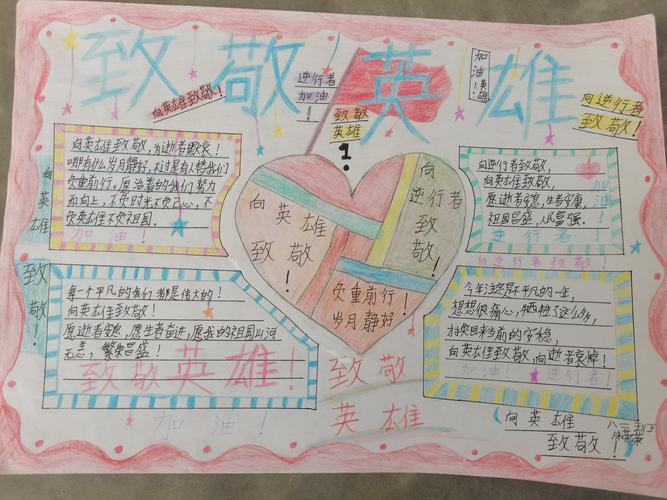 致敬英雄
向英雄致敬!
逆行者
加油!
致敬
英雄
加油!英雄
向逆行者
致敬!
向英雄致敬,为逝者默哀!
哪有什么岁月静好,不过是有人替我们
负重前行,愿活着的我们努力
而向上,不负时光不负己心,不
负英雄不负祖国.
加油!
向英雄
致敬!
向英雄
致敬!
向
逆行者
致敬!
负重前行!
岁月静好!
向逆行者致敬,
向英雄致敬,
愿逝者安息,生者安康,
祖国昌盛,人民富强.
逆行者!
加油!
向逆行者致敬!
每一个平凡的我们都是伟大的!
向英雄致敬!
愿逝者安息,愿生者奋进,愿我的祖国山河
无恙,繁荣昌盛!
致敬英雄!
加油!
致敬
英雄
今年注定是不平凡的一年,
想想很痛心,牺牲了这么多,
才换回来当前的安稳,
向英雄致敬,向逝者哀悼!
加油! 逆行者!
向英雄
致敬!